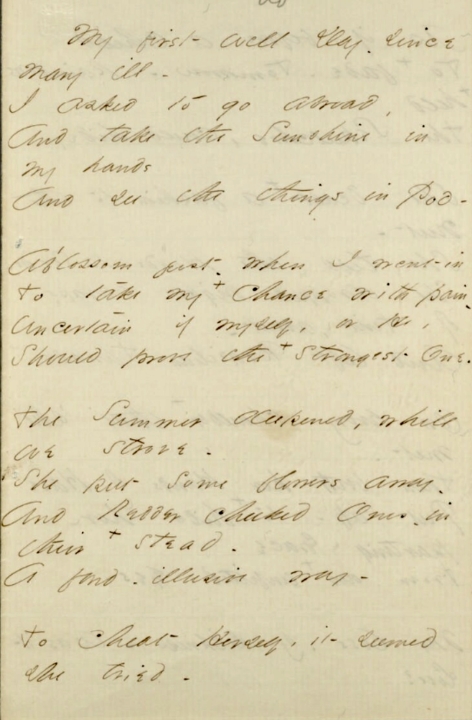 My first well Day. since
many ill -
I asked to go abroad,
And take the Sunshine in
my hands
And see the things in Pod -

A'blossom just. when I went in
To take my + Chance with pain.
Uncertain if myself, or He,
Should prove the + strongest One.

The Summer deepened, while
we strove -
She put some flowers away.
And Redder cheeked Ones. in
their + stead -
A fond. illusive way -

To cheat Herself, it seemed
she tried -